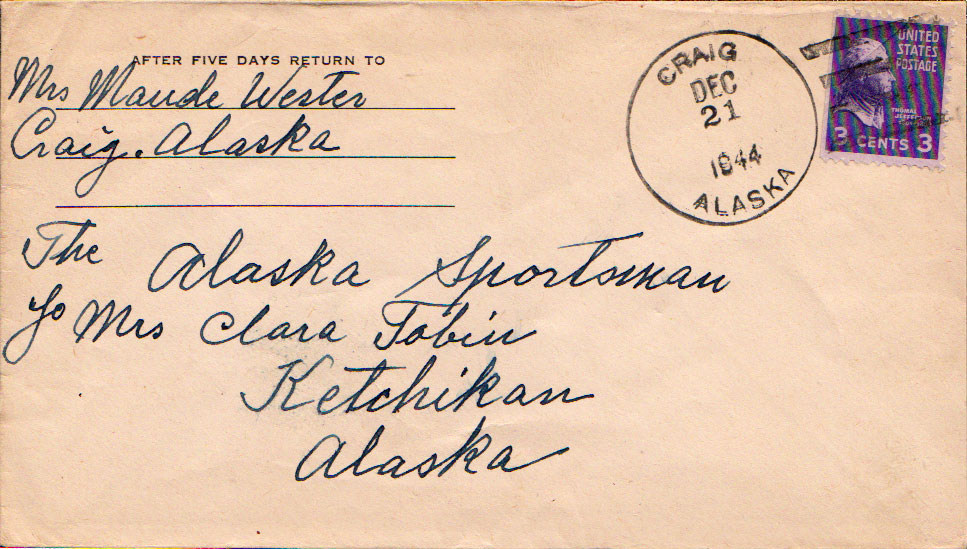 AFTER FIVE DAYS RETURN TO
Mrs Maude Wester
Craig. Alaska
CRAIG
DEC
21
1944
ALASKA
UNITED
STATES
POSTAGE
THOMAS
JEFFERSON
3 CENTS 3
The Alaska Sportsman
℅ Mrs Clara Tobin
Ketchikan
Alaska